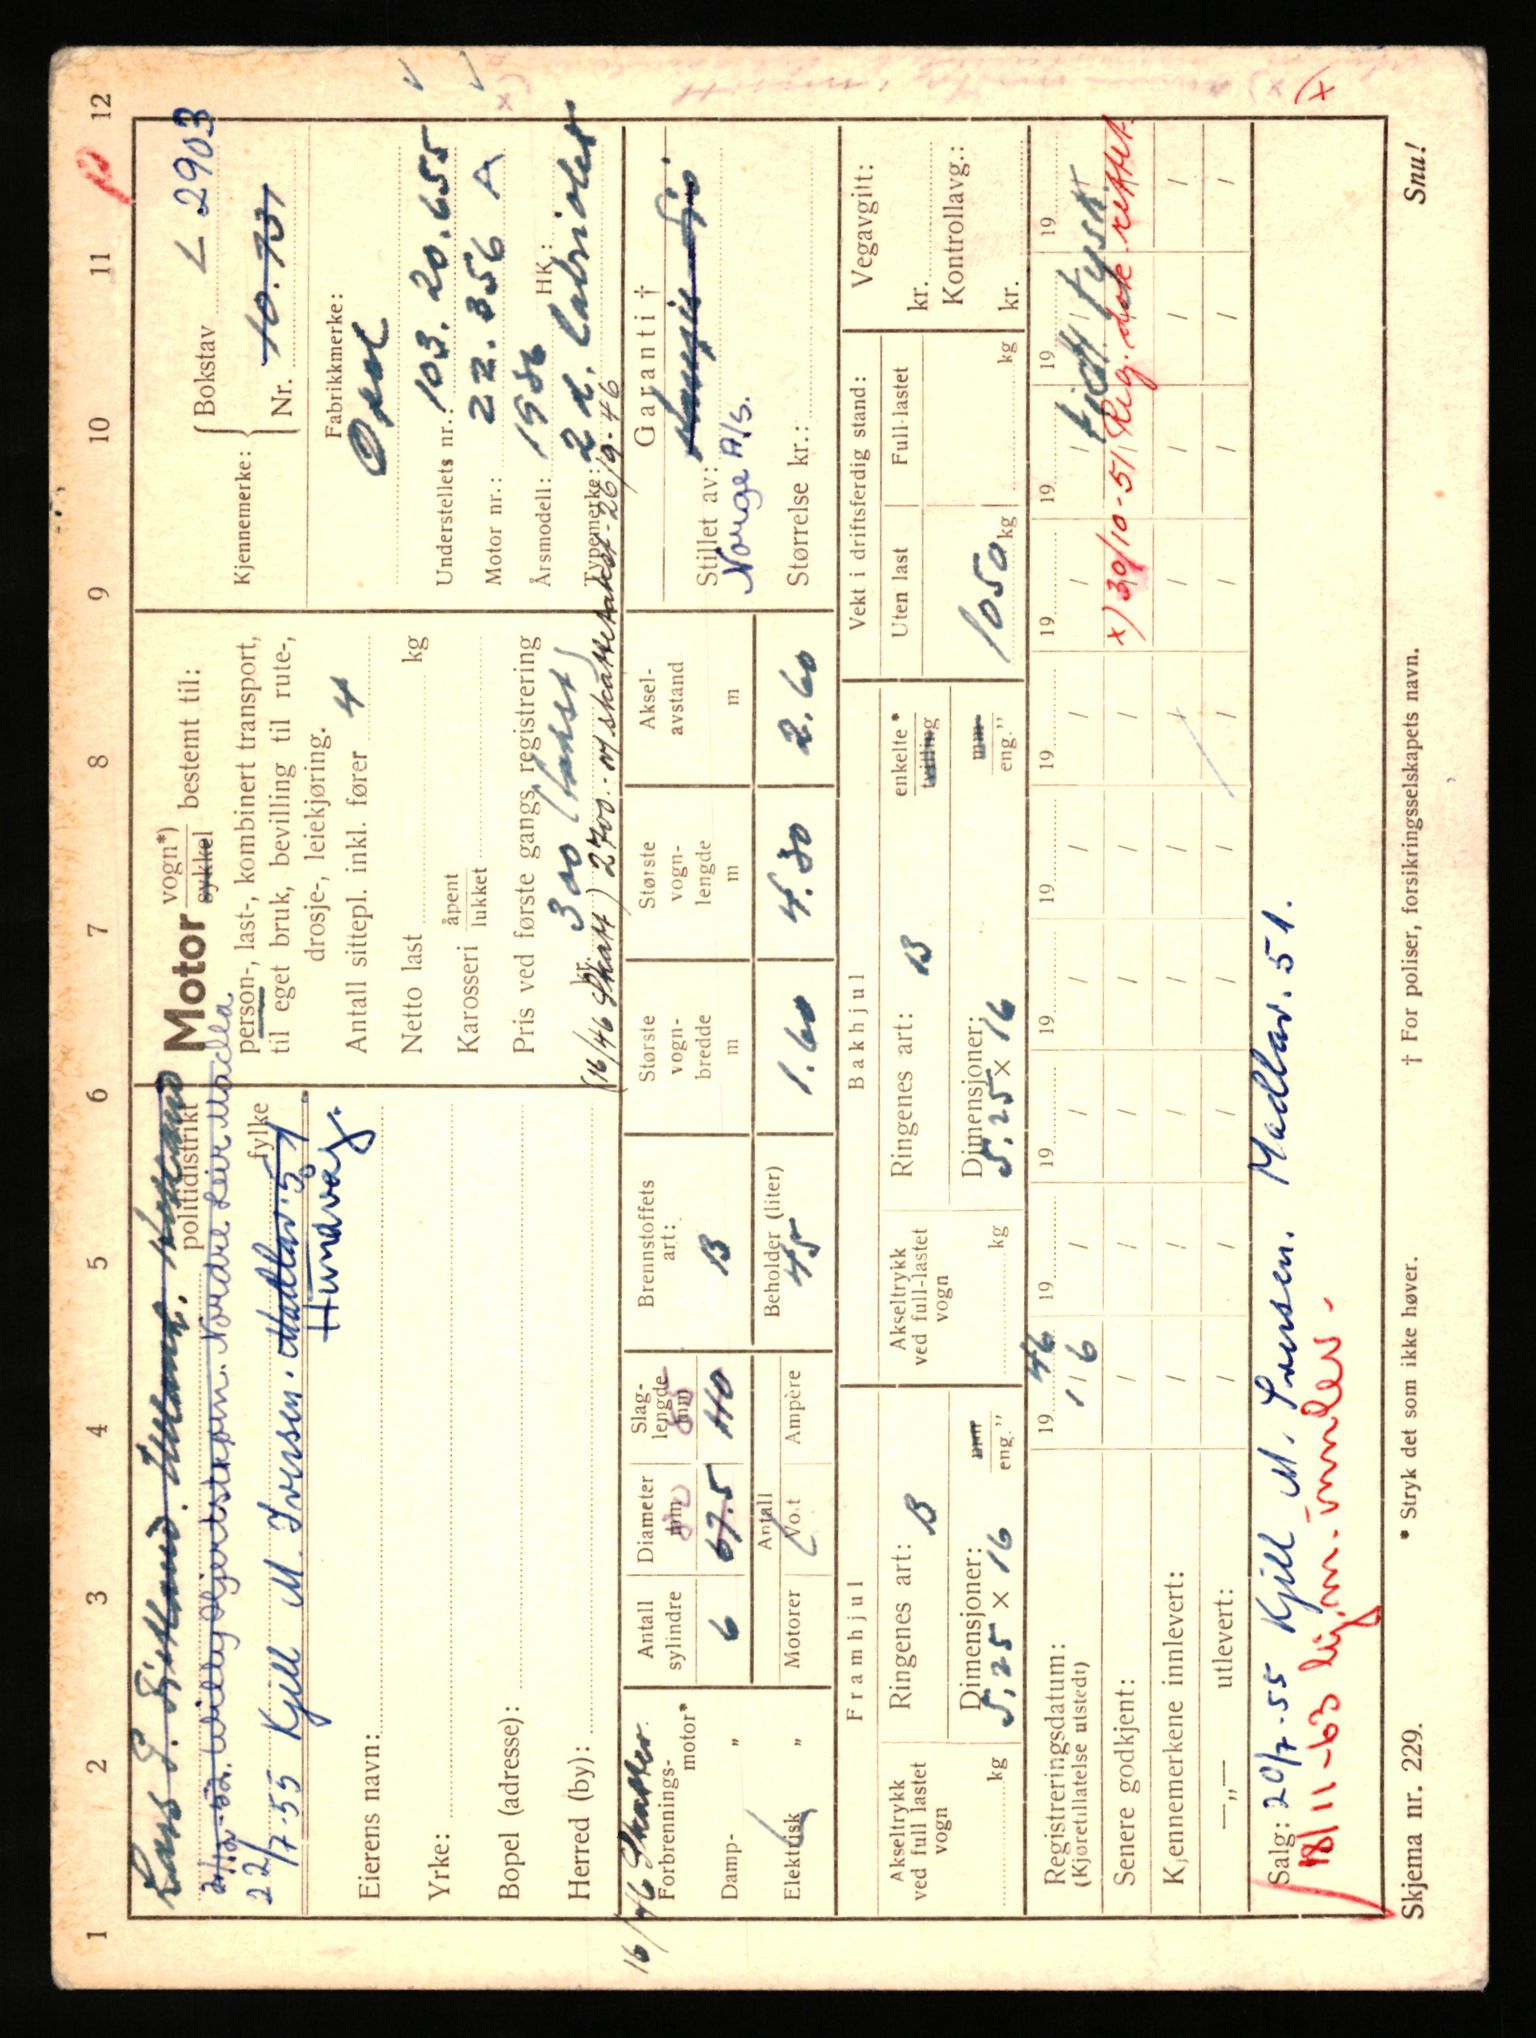 1 2 3 4 5 6 7 8 9 10 11 12
politidistrikt
2/12-52. Willy Hjertstrøm. Nordre Leir Madla.
fylke
22/7-55 Kjell M. Iversen. Madlav. 51
Hundvåg.
Eierens navn:
Yrke:
Bopel (adresse):
Herred (by):
Motor vogn*) sykkel bestemt til:
person-, last-, kombinert transport,
til eget bruk, bevilling til rute-,
drosje-, leiekjøring.
Antall sittepl. inkl. fører 4
Netto last kg
Karosseri åpent lukket
Pris ved første gangs registrering
kr. 300 (takst)
(16/46 Skatt) 2700.- m/skatte takst - 26/9-46
Kjennemerke: Bokstav L 2903
Nr. 10.731
Fabrikkmerke:
Opel
Understellets nr.: 103. 20. 655
Motor nr.: 22. 356 A
Årsmodell: 1936 HK:
Typemerke: 2 d. Cabriolet
16/46 Skatter.
Forbrennings-motor*
Damp- „
Elektrisk „
Antall sylindre 6
Diameter mm 67.5 80
Slag-lengde mm 110
Motorer
Antall Volt
Ampère
Brennstoffets art: B
Beholder (liter) 45
Største vogn-bredde m 1.60
Største vogn-lengde m 4.30
Aksel-avstand m 2.60
Garanti †
Stillet av:
Norge A/S.
Størrelse kr.:
Framhjul
Akseltrykk ved full lastet vogn kg
Ringenes art: B
Dimensjoner: mm eng."
5.25 × 16
Bakhjul
Akseltrykk ved full-lastet vogn kg
Ringenes art: B
enkelte* tvilling
Dimensjoner: mm eng."
5.25 × 16
Vekt i driftsferdig stand:
Uten last Full-lastet
1050 kg kg
Vegavgift:
kr.
Kontrollavg.:
kr.
Registreringsdatum: 19 46 19 19 19 19 19 19 19 19 19
(Kjøretillatelse utstedt) 1/6 / / / / / / / /
tidl. tysk.
Senere godkjent: / / / / / / / x) 30/10-51 Reg. dok. rettet.
Kjennemerkene innlevert: / / / / / / / / / /
—„— utlevert: / / / / / / / / / /
x)
Salg: 20/7-55 Kjell M. Iversen. Madlav. 51.
18/11-63
Skjema nr. 229.
* Stryk det som ikke høver.
† For poliser, forsikringsselskapets navn.
Snu!